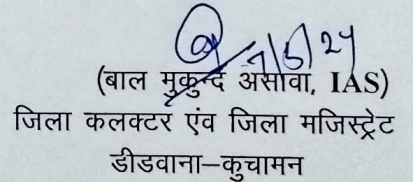 7/5/24
(बाल मुकुन्द असावा, IAS)
जिला कलक्टर एंव जिला मजिस्ट्रेट
डीडवाना–कुचामन